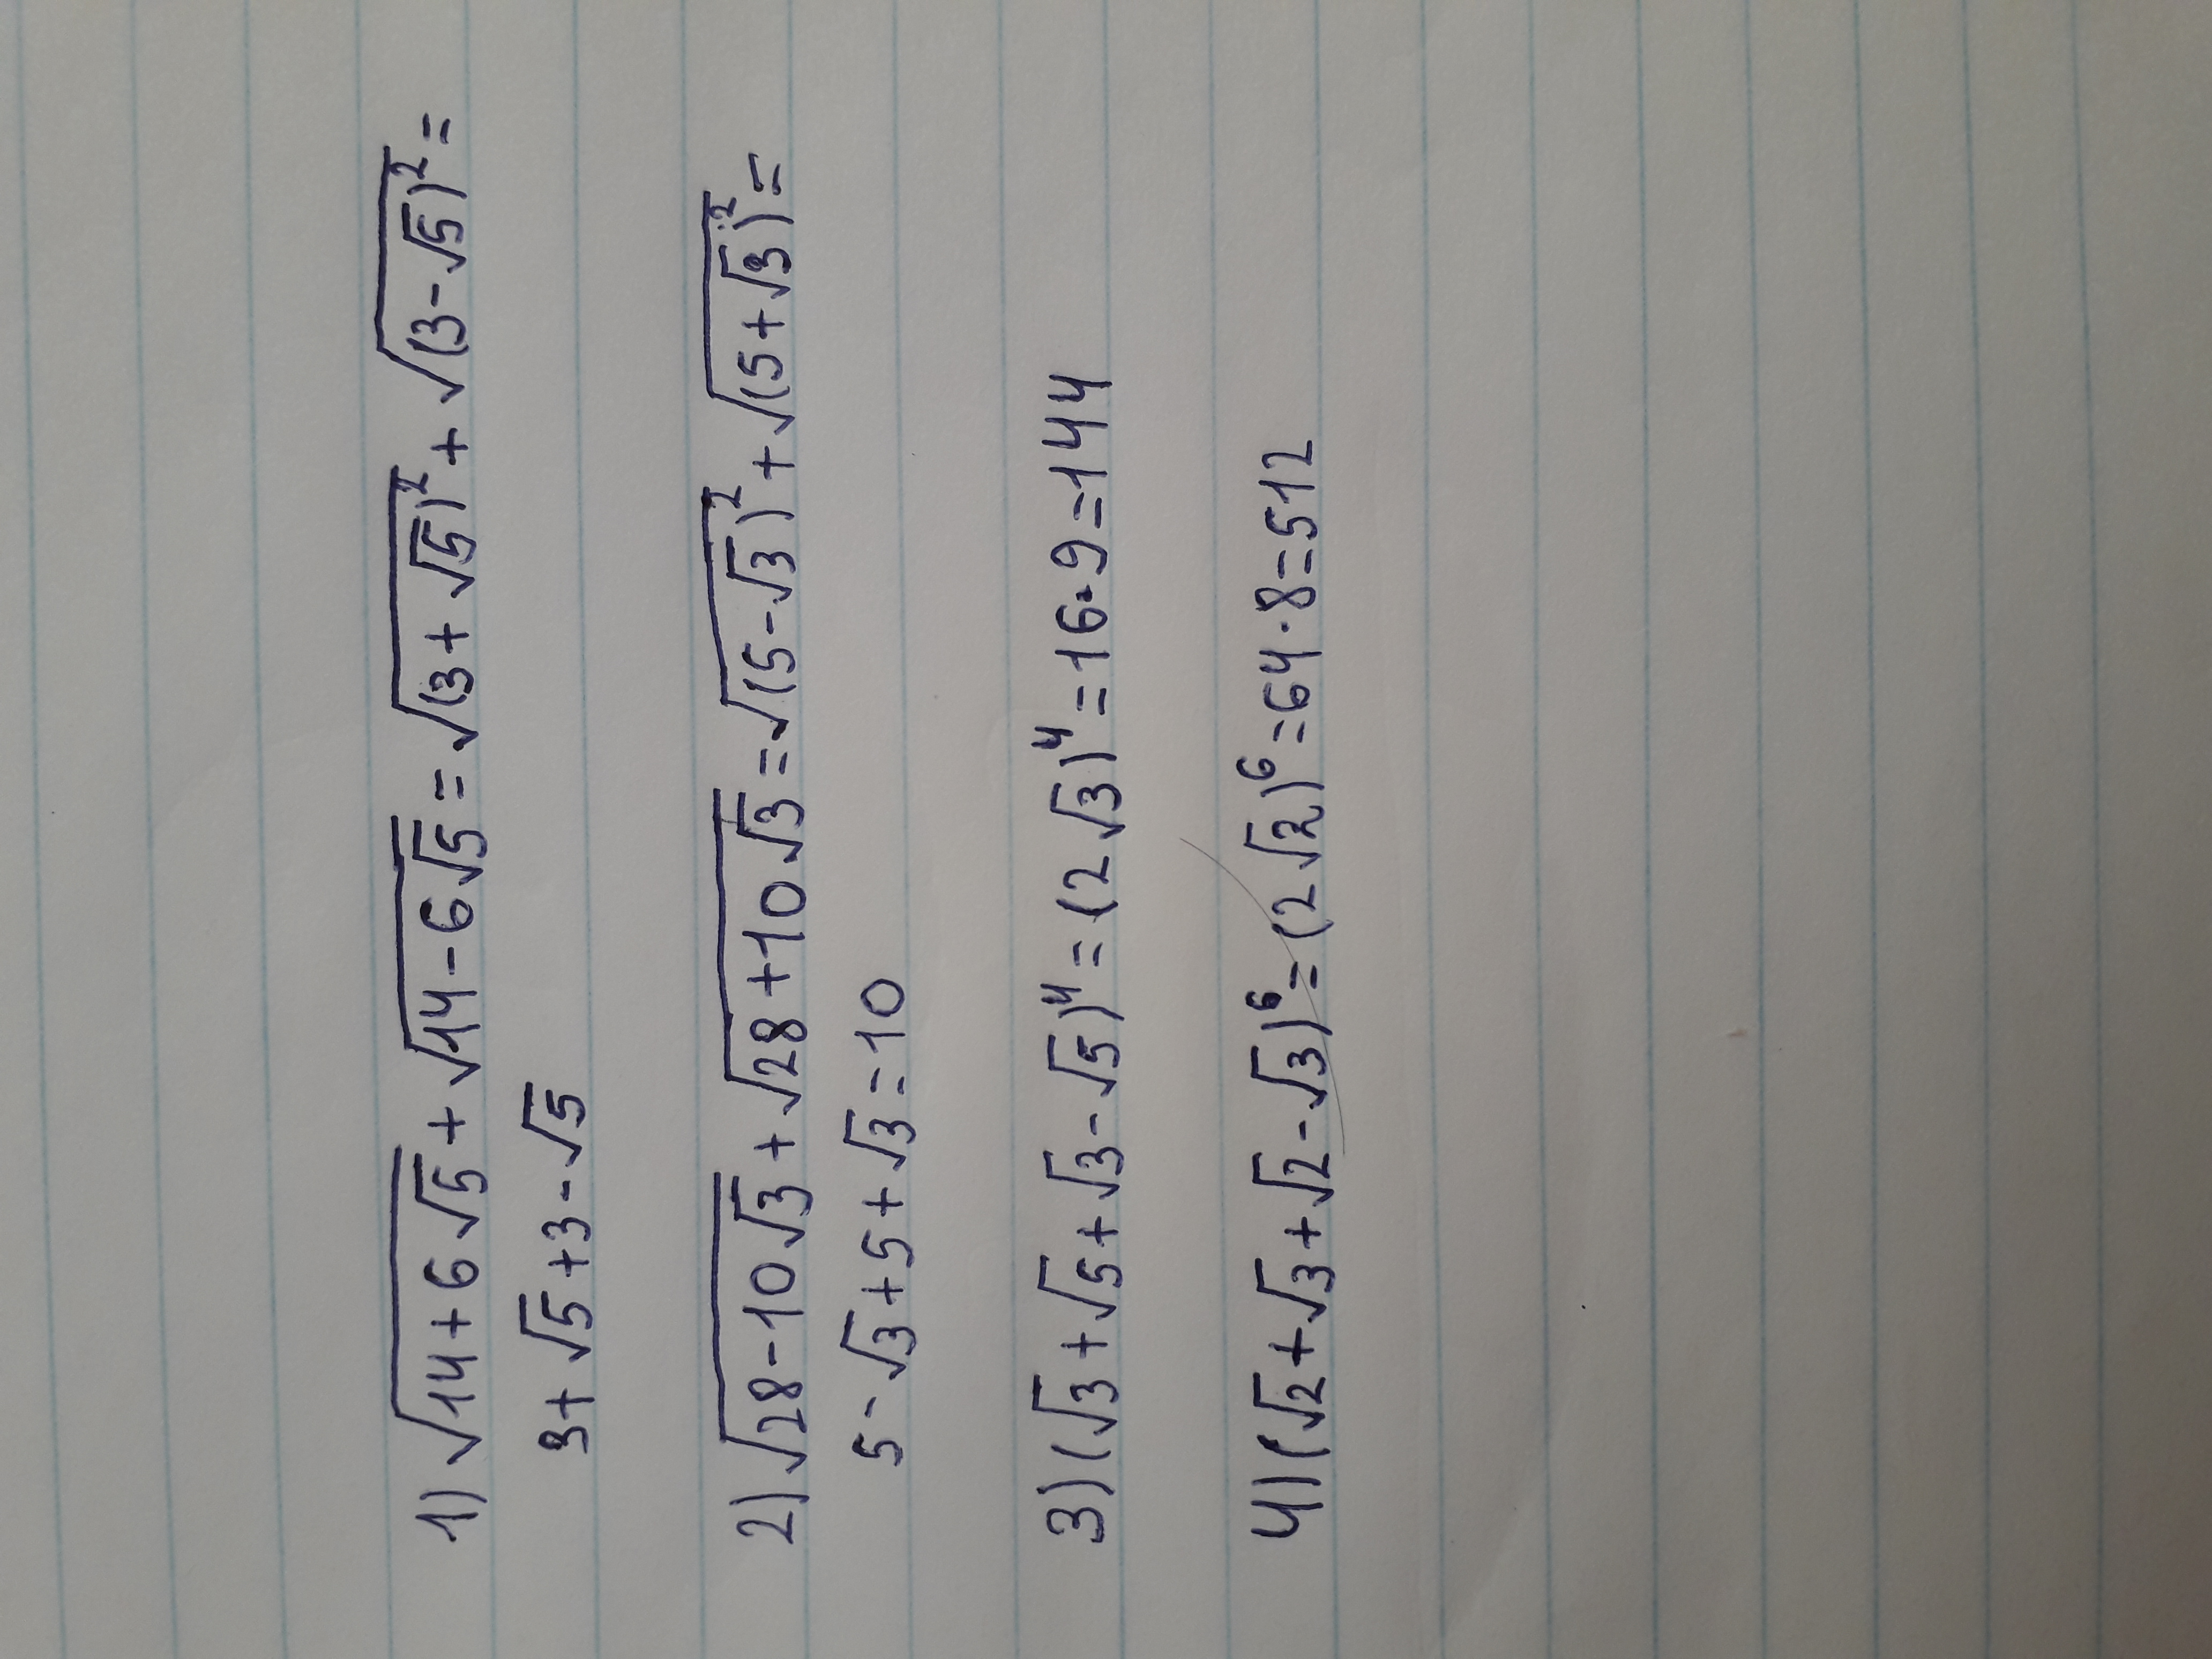 1) √(14+6√5) + √(14-6√5) = √((3+√5)²) + √((3-√5)²) =
3+√5+3-√5
2) √(28-10√3) + √(28+10√3) = √((5-√3)²) + √((5+√3)²) =
5-√3+5+√3=10
3) (√3+√5+√3-√5)⁴ = (2√3)⁴ = 16·9=144
4) (√2+√3+√2-√3)⁶ = (2√2)⁶ = 64·8=512